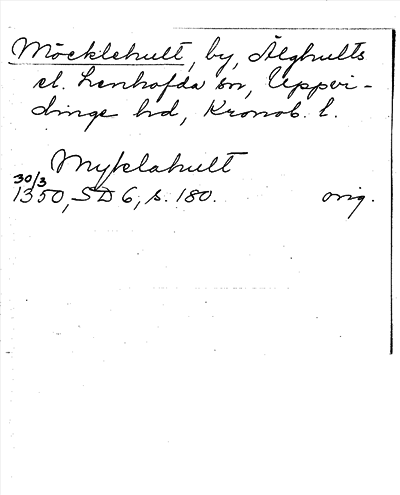 Möcklehult, by, Älghults
el. Lenhofda sn, Uppvi-
dinge hd, Kronob. l.
Myklahult
30/3
1350, SD 6, s. 180. orig.